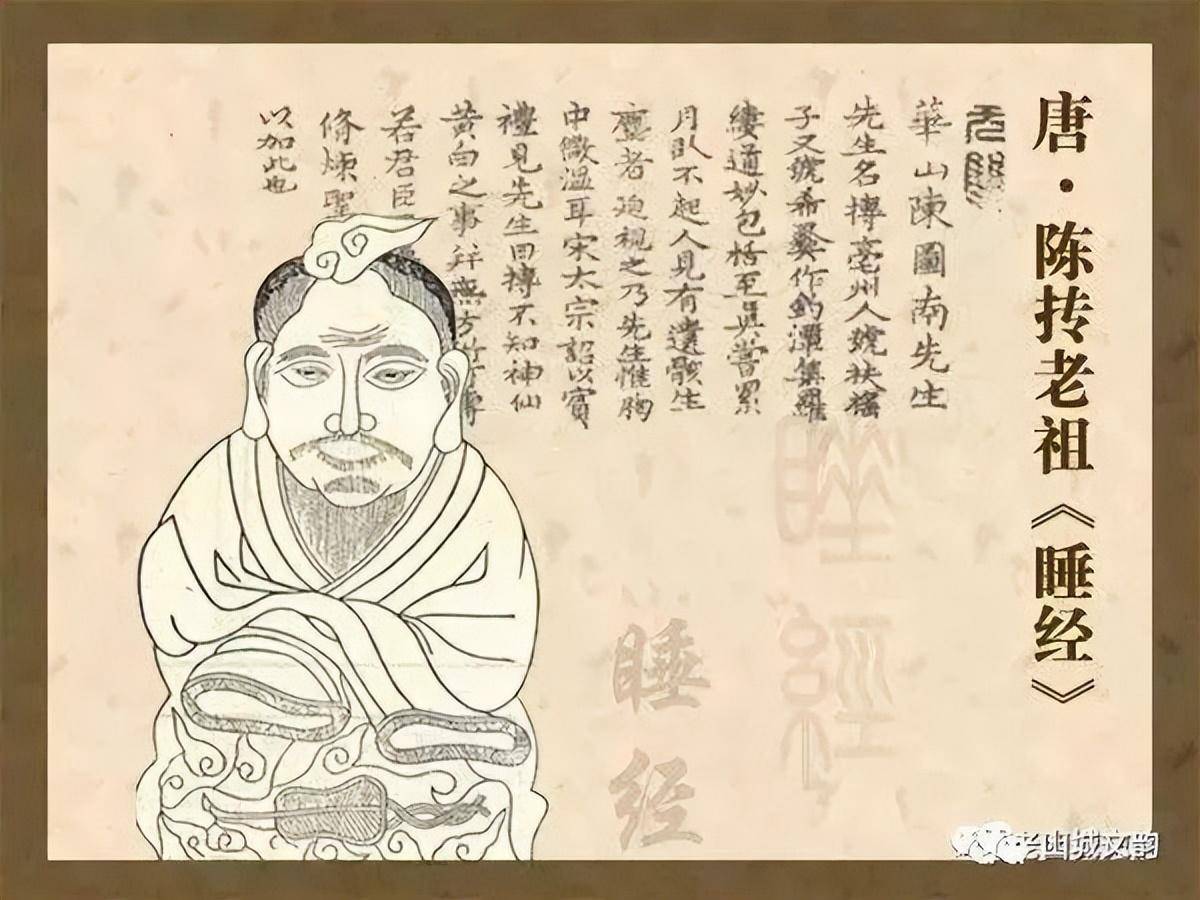 唐·陈抟老祖《睡经》
華山陳圖南先生
先生名摶亳州人號扶摇
子又號希夷作釣潭集羅
縷道妙包括至真嘗累
月臥不起人見有遺骸生
塵者迫視之乃先生惟胸
中微溫耳宋太宗詔以賓
禮見先生曰摶不知神仙
黄白之事并無方術
若君臣
脩煉聖
以加此也
睡經
睡经
城文韵